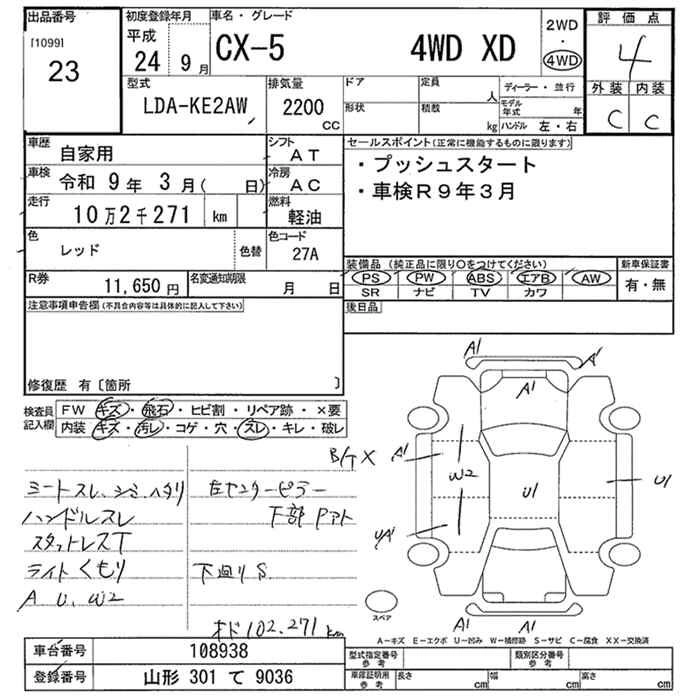 出品番号
[1099]
23
初度登録年月
平成
24 9月
車名・グレード
CX-5 4WD XD
2WD
・
4WD
評価点
4
外装 内装
C C
型式
LDA-KE2AW
排気量
2200
CC
ドア
定員
人
ディーラー・並行
形状
積数
kg
モデル年式 年
ハンドル 左・右
車歴
自家用
シフト
AT
車検
令和 9年 3月( 日)
冷房
AC
走行
10万2千271 km
燃料
軽油
色
レッド
色替
色コード
27A
R券
11,650円
名変通知期限
月 日
セールスポイント(正常に機能するものに限ります)
・プッシュスタート
・車検R9年3月
装備品(純正品に限り〇をつけてください)
新車保証書
PS PW ABS エアB AW
有・無
SR ナビ TV カワ
後日品
注意事項申告欄(不具合内容等は具体的に記入して下さい)
修復歴 有〔箇所 〕
検査員記入欄
FW キズ・飛石・ヒビ割・リペア跡・×要
内装 キズ・汚レ・コゲ・穴・スレ・キレ・破レ
シートスレ、シミ、ヘタリ
ハンドルスレ
スタットレスT
ライトくもり
A U、W2
左センターピラー
下部Pアト
下廻りS
オド102,271km
B/T X
A1
A1
A1
A1
W2
U1
U1
UA1
A1
A1
スペア
A-キズ E-エクボ U-凹み W-補修跡 S-サビ C-腐食 XX-交換済
車台番号
108938
登録番号
山形 301 て 9036
型式指定番号
参考
類別区分番号
参考
車庫証明用
参考
長さ cm
幅 cm
高さ cm